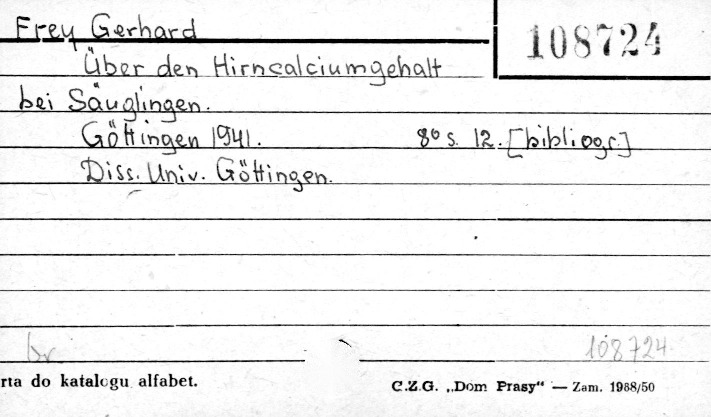 Frey Gerhard
108724
Über den Hirncalciumgehalt
bei Säuglingen.
Göttingen 1941. 8° s. 12. [bibliogr.]
Diss. Univ. Göttingen.
br. 108724
rta do katalogu alfabet. C.Z.G. „Dom Prasy“ — Zam. 1988/50